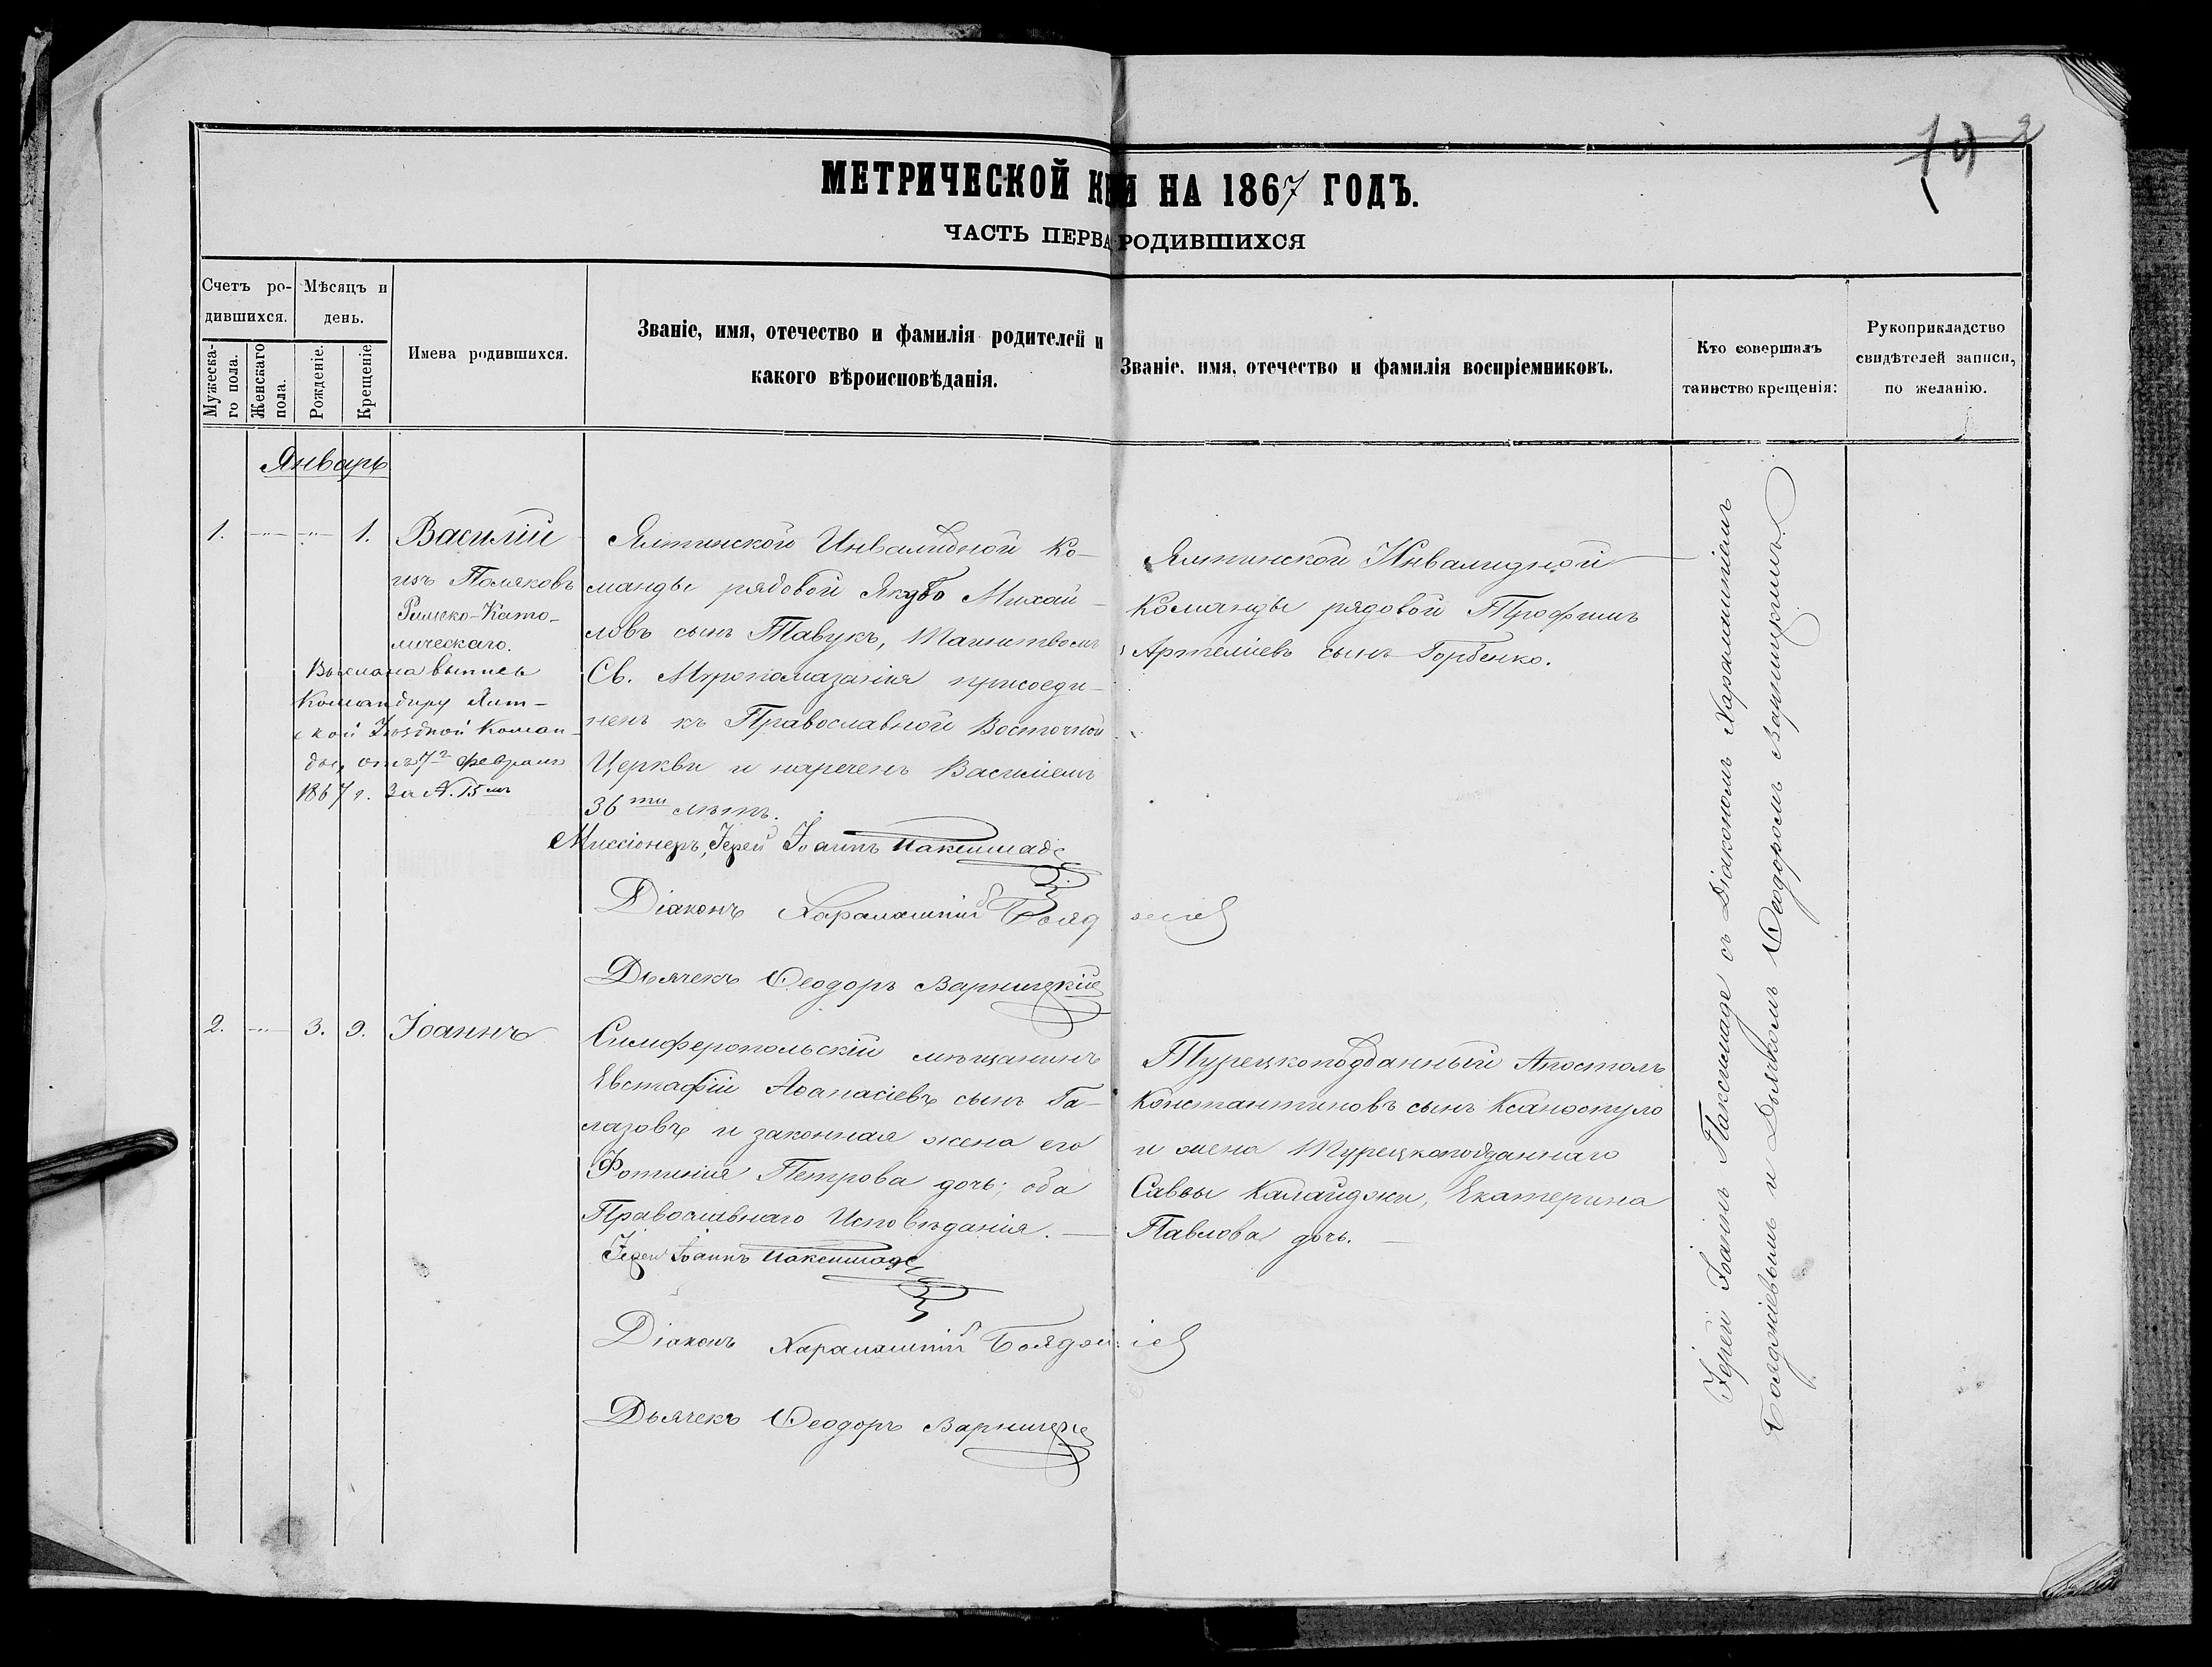 МЕТРИЧЕСКОЙ КНИ НА 1867 ГОДЪ.
ЧАСТЬ ПЕРВА РОДИВШИХСЯ
Счетъ ро-
дившихся.
Мужеска-
го пола.
Женскаго
пола.
Мѣсяцъ и
день.
Рожденіе.
Крещеніе
Имена родившихся.
Званіе, имя, отечество и фамилія родителей и
какого вѣроисповѣданія.
Званіе, имя, отечество и фамилія воспріемниковъ.
Кто совершалъ
таинство крещенія:
Рукоприкладство
свидѣтелей записи,
по желанію.
Январь
1. 1. Василій
изъ Поляковъ
Римско-Като-
лическаго.
Выслана выпись
Командиру Ялт-
ской Уѣздной Коман-
ды, отъ 7го февраля
1867 г. за N. 15мъ
Ялтинской Инвалидной Ко-
манды рядовой Якубъ Михай-
ловъ сынъ Тавукъ, Таинствомъ
Св. Мvропомазанія присоеди-
ненъ къ Православной Восточной
Церкви и нареченъ Василіемъ
36ти лѣтъ.
Миссіонеръ, Іерей Іоаннъ Паксимаде
Діаконъ Харалампій Бояджіевъ
Дьячекъ Ѳеодоръ Варницкій
Ялтинской Инвалидной
Команды рядовой Трофимъ
Артеміевъ сынъ Горбенко.
2. 3. 9. Іоаннъ
Симферопольскій мѣщанинъ
Евстафій Аѳанасіевъ сынъ Га-
лазовъ и законная жена его
Фотинія Петрова дочь; оба
Православнаго Исповѣданія.
Іерей Іоаннъ Паксимаде
Діаконъ Харалампій Бояджіевъ
Дьячекъ Ѳеодоръ Варницкій
Турецкоподданный Апостолъ
Константиновъ сынъ Ксанѳопуло
и жена Турецкоподданнаго
Саввы Калайджи, Екатерина
Павлова дочь.
Іерей Іоаннъ Паксимаде съ Діакономъ Харалампіемъ
Бояджіевымъ и Дьячкомъ Ѳеодоромъ Варницкимъ.